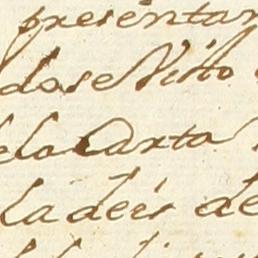 presentar
dose Visto
dela Carta
Ladeis de